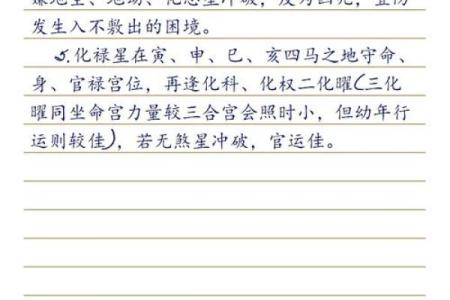 嫌地空、地劫、化忌星冲破，反为凶兆，宜防
发生入不敷出的困境。
5.化禄星在寅、申、巳、亥四马之地守命、
身、官禄宫位，再逢化科、化权二化曜(三化
曜同坐命宫力量较三合宫会照时小，但幼年行
运则较佳)，若无煞星冲破，官运佳。